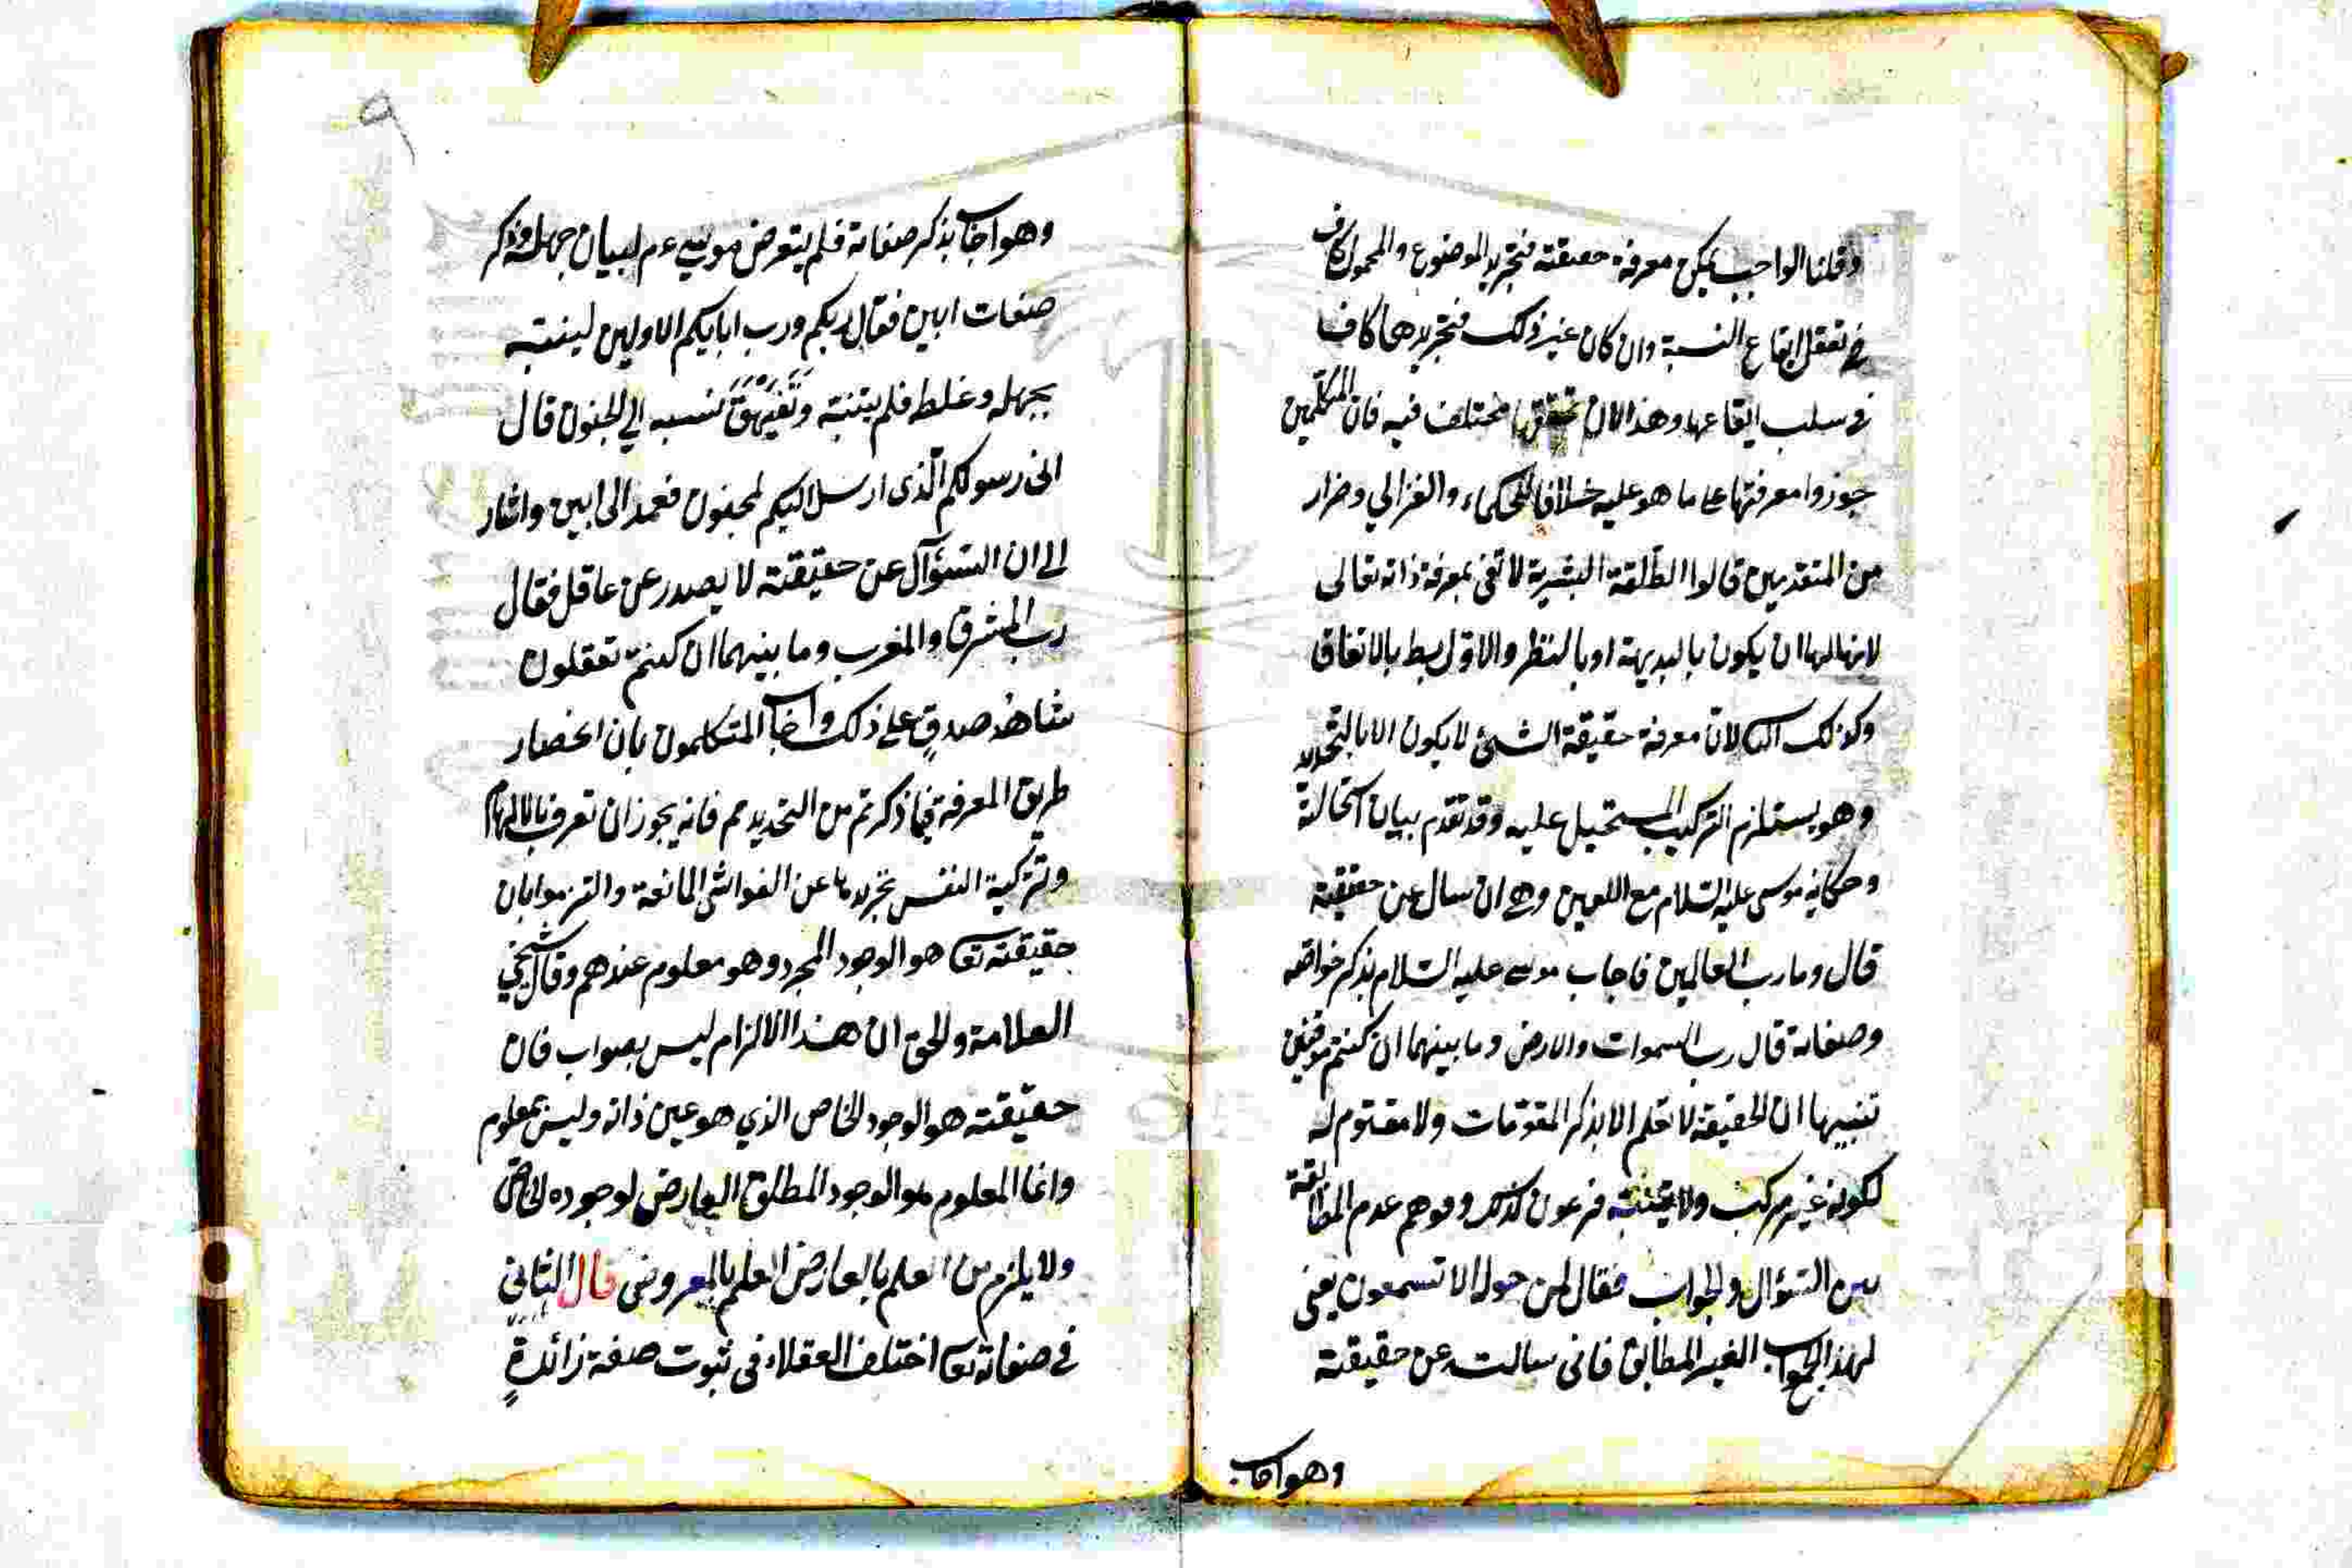 وقلنا الواجب يمكن معرفة حقيقته فتجريد الموضوع والمحمول كاف
في تعقل ايقاع النسبة وان كان غير ذلك فتجريدهما كاف
في سلب ايقاعها وهذا الان مختلف فيه فان المتكلمين
جوزوا معرفتها على ما هو عليه خلافا للحكماء والغزالي وضرار
من المتقدمين قالوا الطاقة البشرية لا تفى بمعرفة ذاته تعالى
لانها اما ان يكون بالبديهة او بالنظر والاول بط بالاتفاق
وكذلك الثا لان معرفة حقيقة الشئ لا يكون الا بالتحديد
وهو يستلزم التركيب المستحيل عليه وقد تقدم بيان استحالته
وحكاية موسى عليه السلام مع اللعين وهي ان سال عن حقيقة
قال وما رب العالمين فاجاب موسى عليه السلام بذكر خواصه
وصفاته قال رب السموات والارض وما بينهما ان كنتم موقنين
تنبيها ان الحقيقة لا تعلم الا بذكر المقومات ولا مقوم له
لكونه غير مركب ولا يتنبه فرعون لذلك وتوهم عدم المطابقة
بين السؤال والجواب فقال لمن حوله الا تسمعون يعنى
لهذا الجواب الغير المطابق فانى سالت عن حقيقته
وهو اجاب
٩
وهو اجاب بذكر صفاته فلم يتعرض موسى عم لبيان جهله وذكر
صفات ابين فقال ربكم ورب ابايكم الاولين لينتبه
بجهله وغلط فلم يتنبه نسبه الي الجنون قال
انى رسولكم الذى ارسل اليكم لمجنون فعمد الى ابين واشار
الى ان السؤال عن حقيقته لا يصدر عن عاقل فقال
رب المشرق والمغرب وما بينهما ان كنتم تعقلون
شاهد صدق على ذلك واجاب المتكلمون بان انحصار
طريق المعرفة فيما ذكرتم من التحديد مم فانه يجوز ان تعرف بالالهام
وتزكية النفس بتجريدها عن الغواشى المانعة والتزموا بان
حقيقته تعا هو الوجود المجرد وهو معلوم عندهم وقال شيخي
العلامة والحق ان هذا الالزام ليس بصواب فان
حقيقته هو الوجود الخاص الذي هو عين ذاته وليس بمعلوم
وانما المعلوم هو الوجود المطلق العارض لوجوده الخاص
ولا يلزم من العلم بالعارض العلم بالمعروض قال الثاني
في صفاته تعا اختلف العقلاء فى ثبوت صفة زائدة